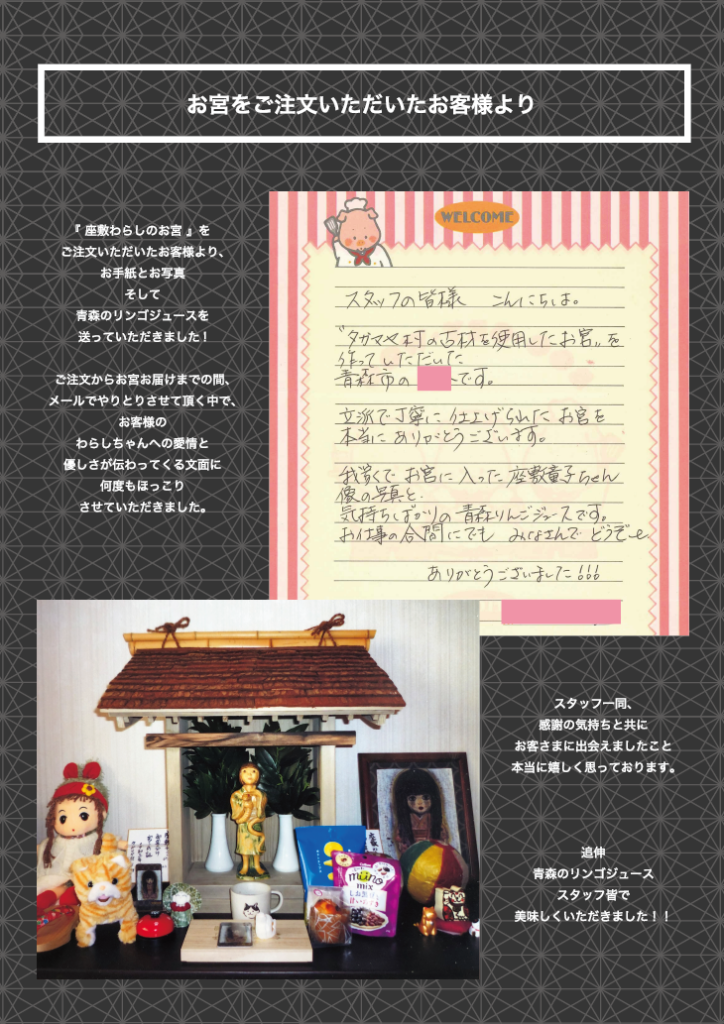 お宮をご注文いただいたお客様より
『 座敷わらしのお宮 』を
ご注文いただいたお客様より、
お手紙とお写真
そして
青森のリンゴジュースを
送っていただきました！
ご注文からお宮お届けまでの間、
メールでやりとりさせて頂く中で、
お客様の
わらしちゃんへの愛情と
優しさが伝わってくる文面に
何度もほっこり
させていただきました。
WELCOME
スタッフの皆様 こんにちは。
"タカマヤ村の古材を使用したお宮"を
作っていただいた
青森市の です。
立派で丁寧に仕上げられたお宮を
本当にありがとうございます。
我家で お宮に入った座敷童子ちゃん
像の写真と
気持ちばかりの青森りんごジュースです。
お仕事の合間にでも みなさんで どうぞ
ありがとうございました!!!
miino
mix
スタッフ一同、
感謝の気持ちと共に
お客さまに出会えましたこと
本当に嬉しく思っております。
追伸
青森のリンゴジュース
スタッフ皆で
美味しくいただきました！！